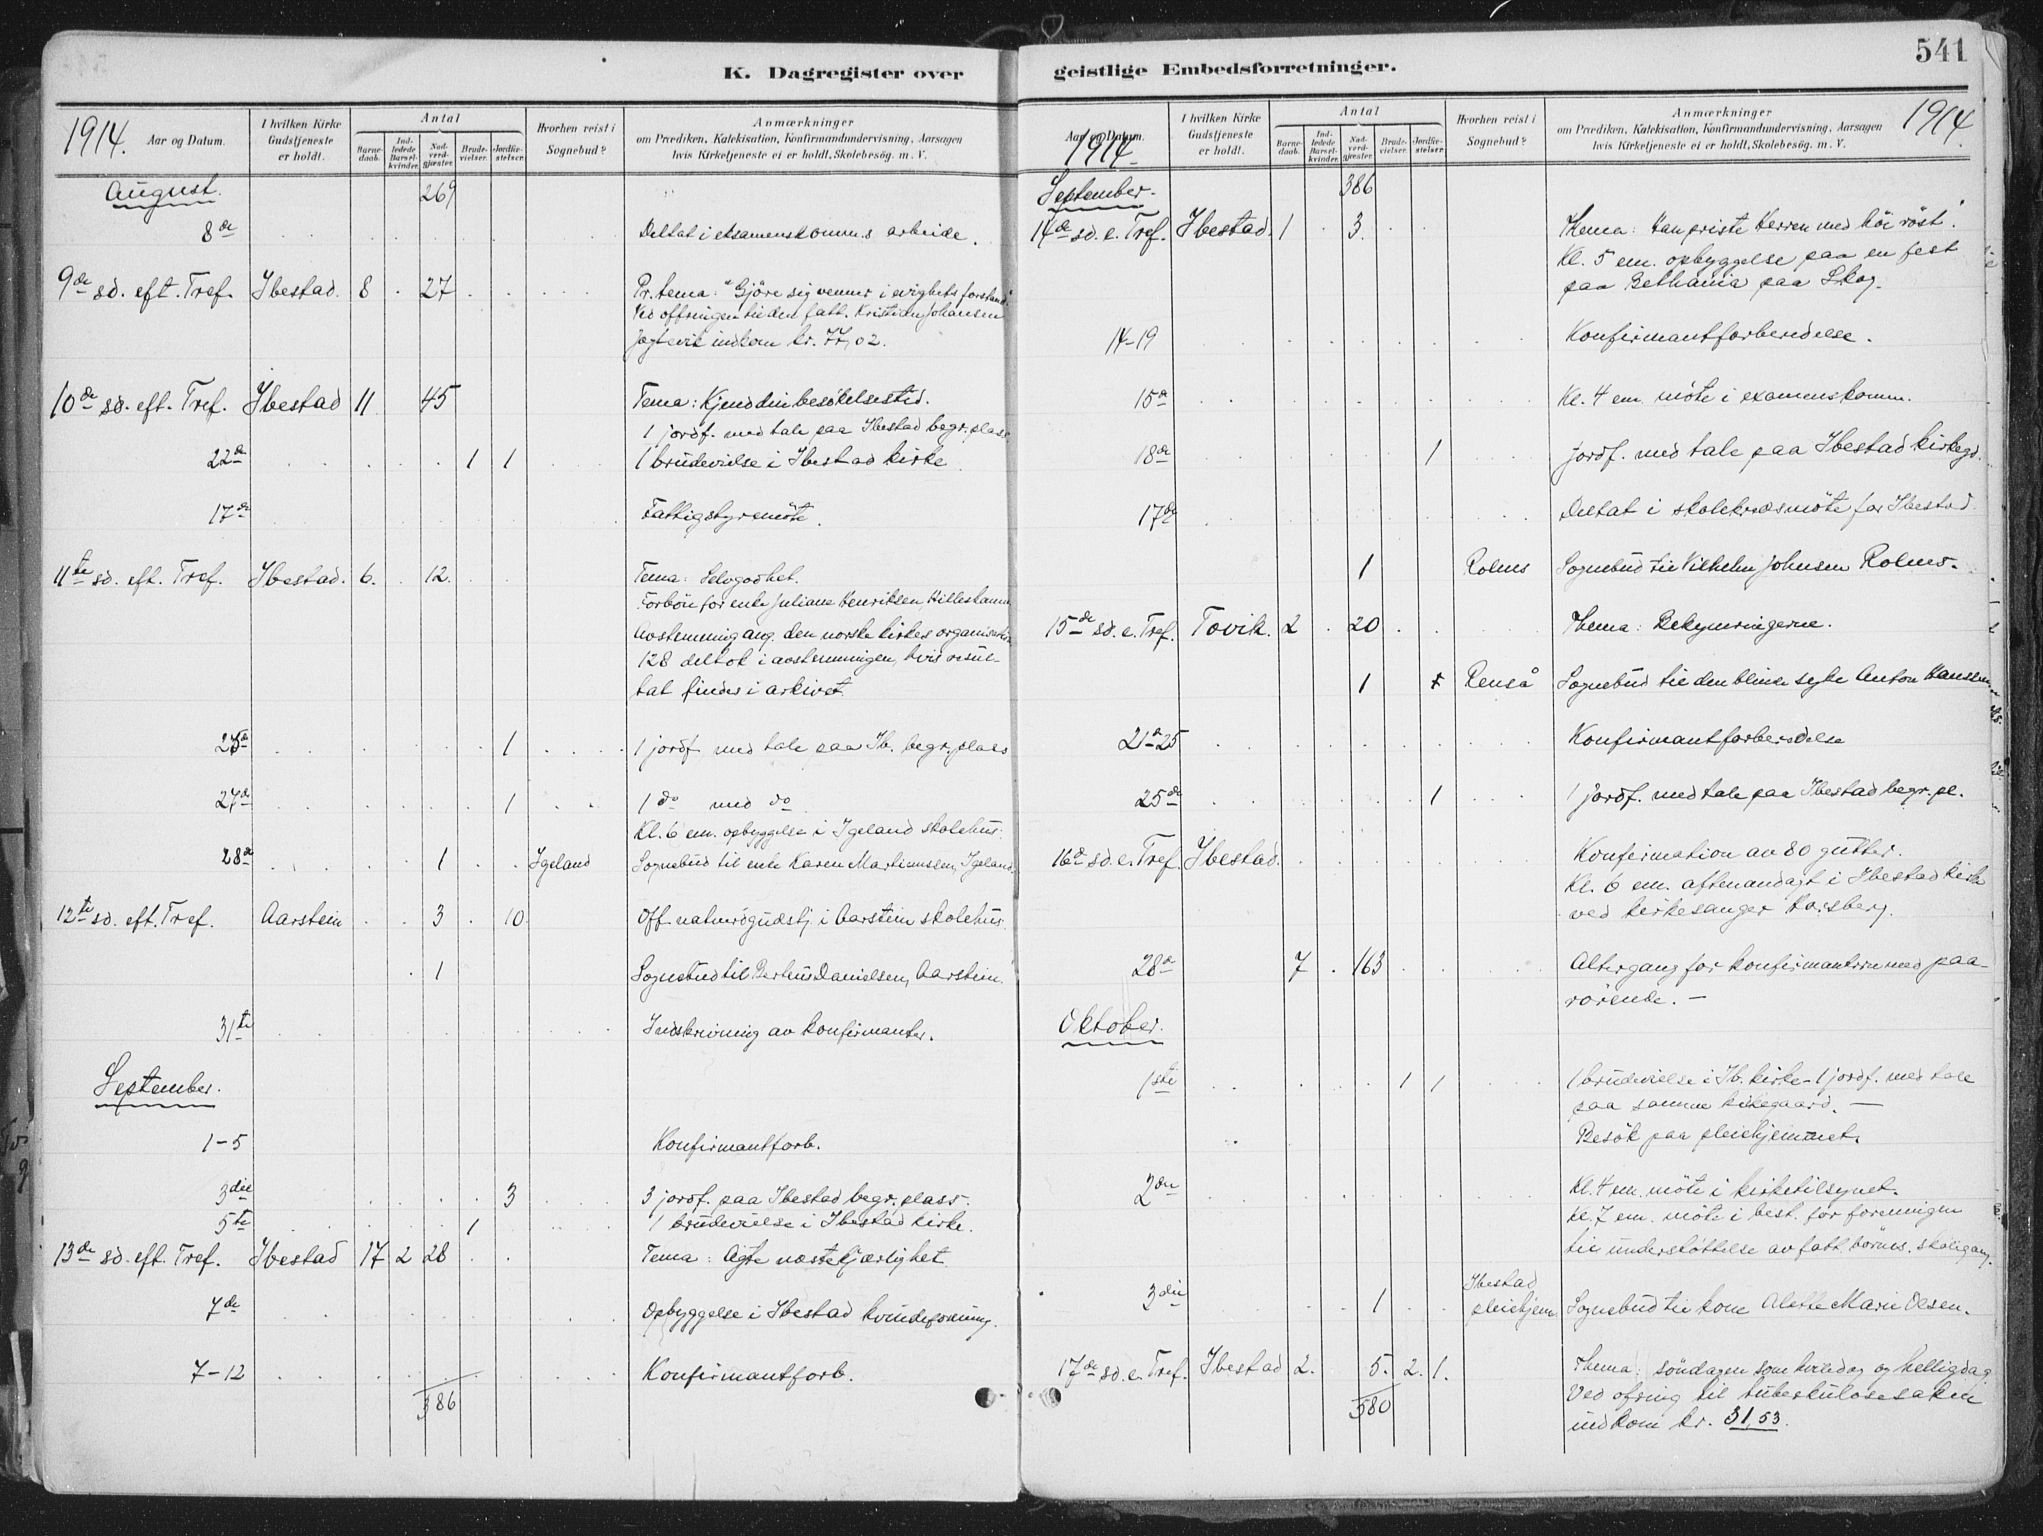 K. Dagregister over
1914.
Aar og Datum.
I hvilken Kirke Gudstjeneste er holdt.
Antal
Barnedaab.
Indledede Barselkvinder.
Nadverdgjester.
Brudevielser.
Jordfæstelser.
Hvorhen reist i Sognebud?
Anmærkninger
om Prædiken, Katekisation, Konfirmandundervisning, Aarsagen
hvis Kirketjeneste ei er holdt, Skolebesøg. m. V.
August. 269
8de Deltat i eksamenskomm.s arbeide.
9de sd. eft. Tref. Ibestad. 8 27 Pr. tema: "Gjöre sig venner i evighets forstand"
Ved offringen til den fatt. Kristiden Johansen
indkom kr. 77,02.
10de sd. eft. Tref. Ibestad 11 45 Tema: Kjend din besökelsestid.
1 jordf. med tale paa Ibestad begr.plass
22de 1 1 1 brudevielse i Ibestad kirke
17de Fattigstyremöte.
11te sd. eft. Tref. Ibestad. 6. 12. Tema: Selvgodhet.
Forbön for enke Juliane Henriksen, Hilleshamn
Avstemning ang. den norske kirkes organisation
128 deltok i avstemningen, hvis resul-
tat findes i arkivet.
25de 1 1 jordf. med tale paa Ib. begr.plass
27de 1 1 do med do
Kl. 6 em. opbyggelse i Igeland skolehus.
28de 1 Igeland Sognebud til enke Karen Martinussen, Igeland.
12te sd. eft. Tref. Aarstein 3 10 Off. natverdgudstj. i Aarstein skolehus.
1 Sognebud til Danielsen, Aarstein.
31te Indskrivning av konfirmanter.
September.
1-5 Konfirmantforb.
3die 3 3 jordf. paa Ibestad begr.plass.
5te 1 1 brudevielse i Ibestad kirke.
13de sd. eft. Tref. Ibestad 17 2 28 Tema: Ægte næstekjærlighet
7de Opbyggelse i Ibestad kvindeforening.
7-12 Konfirmantforb.
386
geistlige Embedsforretninger.
541
Aar og Datum.
1914.
I hvilken Kirke Gudstjeneste er holdt.
Antal
Barnedaab.
Indledede Barselkvinder.
Nadverdgjester.
Brudevielser.
Jordfæstelser.
Hvorhen reist i Sognebud?
Anmærkninger
om Prædiken, Katekisation, Konfirmandundervisning, Aarsagen
hvis Kirketjeneste ei er holdt, Skolebesøg. m. V.
1914.
September. 386
14de sd. e. Tref. Ibestad. 1 3. Thema: Han priste Herren med höi röst.
Kl. 5 em. opbyggelse paa en fest
paa Bethania paa Skog.
14-19 Konfirmantforberedelse.
15de Kl. 4 em. möte i examenskomm.
18de 1 jordf. med tale paa Ibestad kirkegd.
17de Deltat i skolekredsmöte for Ibestad
1 Rolnes Sognebud til Vilhelm Johnsen Rolnes.
15de sd. e. Tref. Tovik. 2 20 Thema: Bekymringerne.
1 Renså Sognebud til den blinde syke Anton Hanssen
21de-25 Konfirmantforberedelse
25de 1 1 jordf. med tale paa Ibestad begr.pl.
16de sd. e. Tref. Ibestad. Konfirmation av 80 gutter.
Kl. 6 em. aftenandagt i Ibestad kirke
ved kirkesanger
28de 7 163 Altergang for konfirmanterne med paa-
rörende. —
Oktober.
1ste 1 1 1 brudevielse i Ib. kirke - 1 jordf. med tale
paa samme kirkegaard. —
Besök paa pleiehjemmet.
2den Kl. 4 em. möte i kirketilsynet.
Kl. 7 em. möte i best. for foreningen
til understöttelse av fatt. börns skolegang.
3die 1 Ibestad
pleiehjem Sognebud til kone Alette Marie Olsen.
17de sd. e. Tref. Ibestad 2. 5. 2. 1. Thema: Söndagen som hviledag og helligdag
Ved ofring til tuberkulosesaken
indkom kr. 31,53.
580